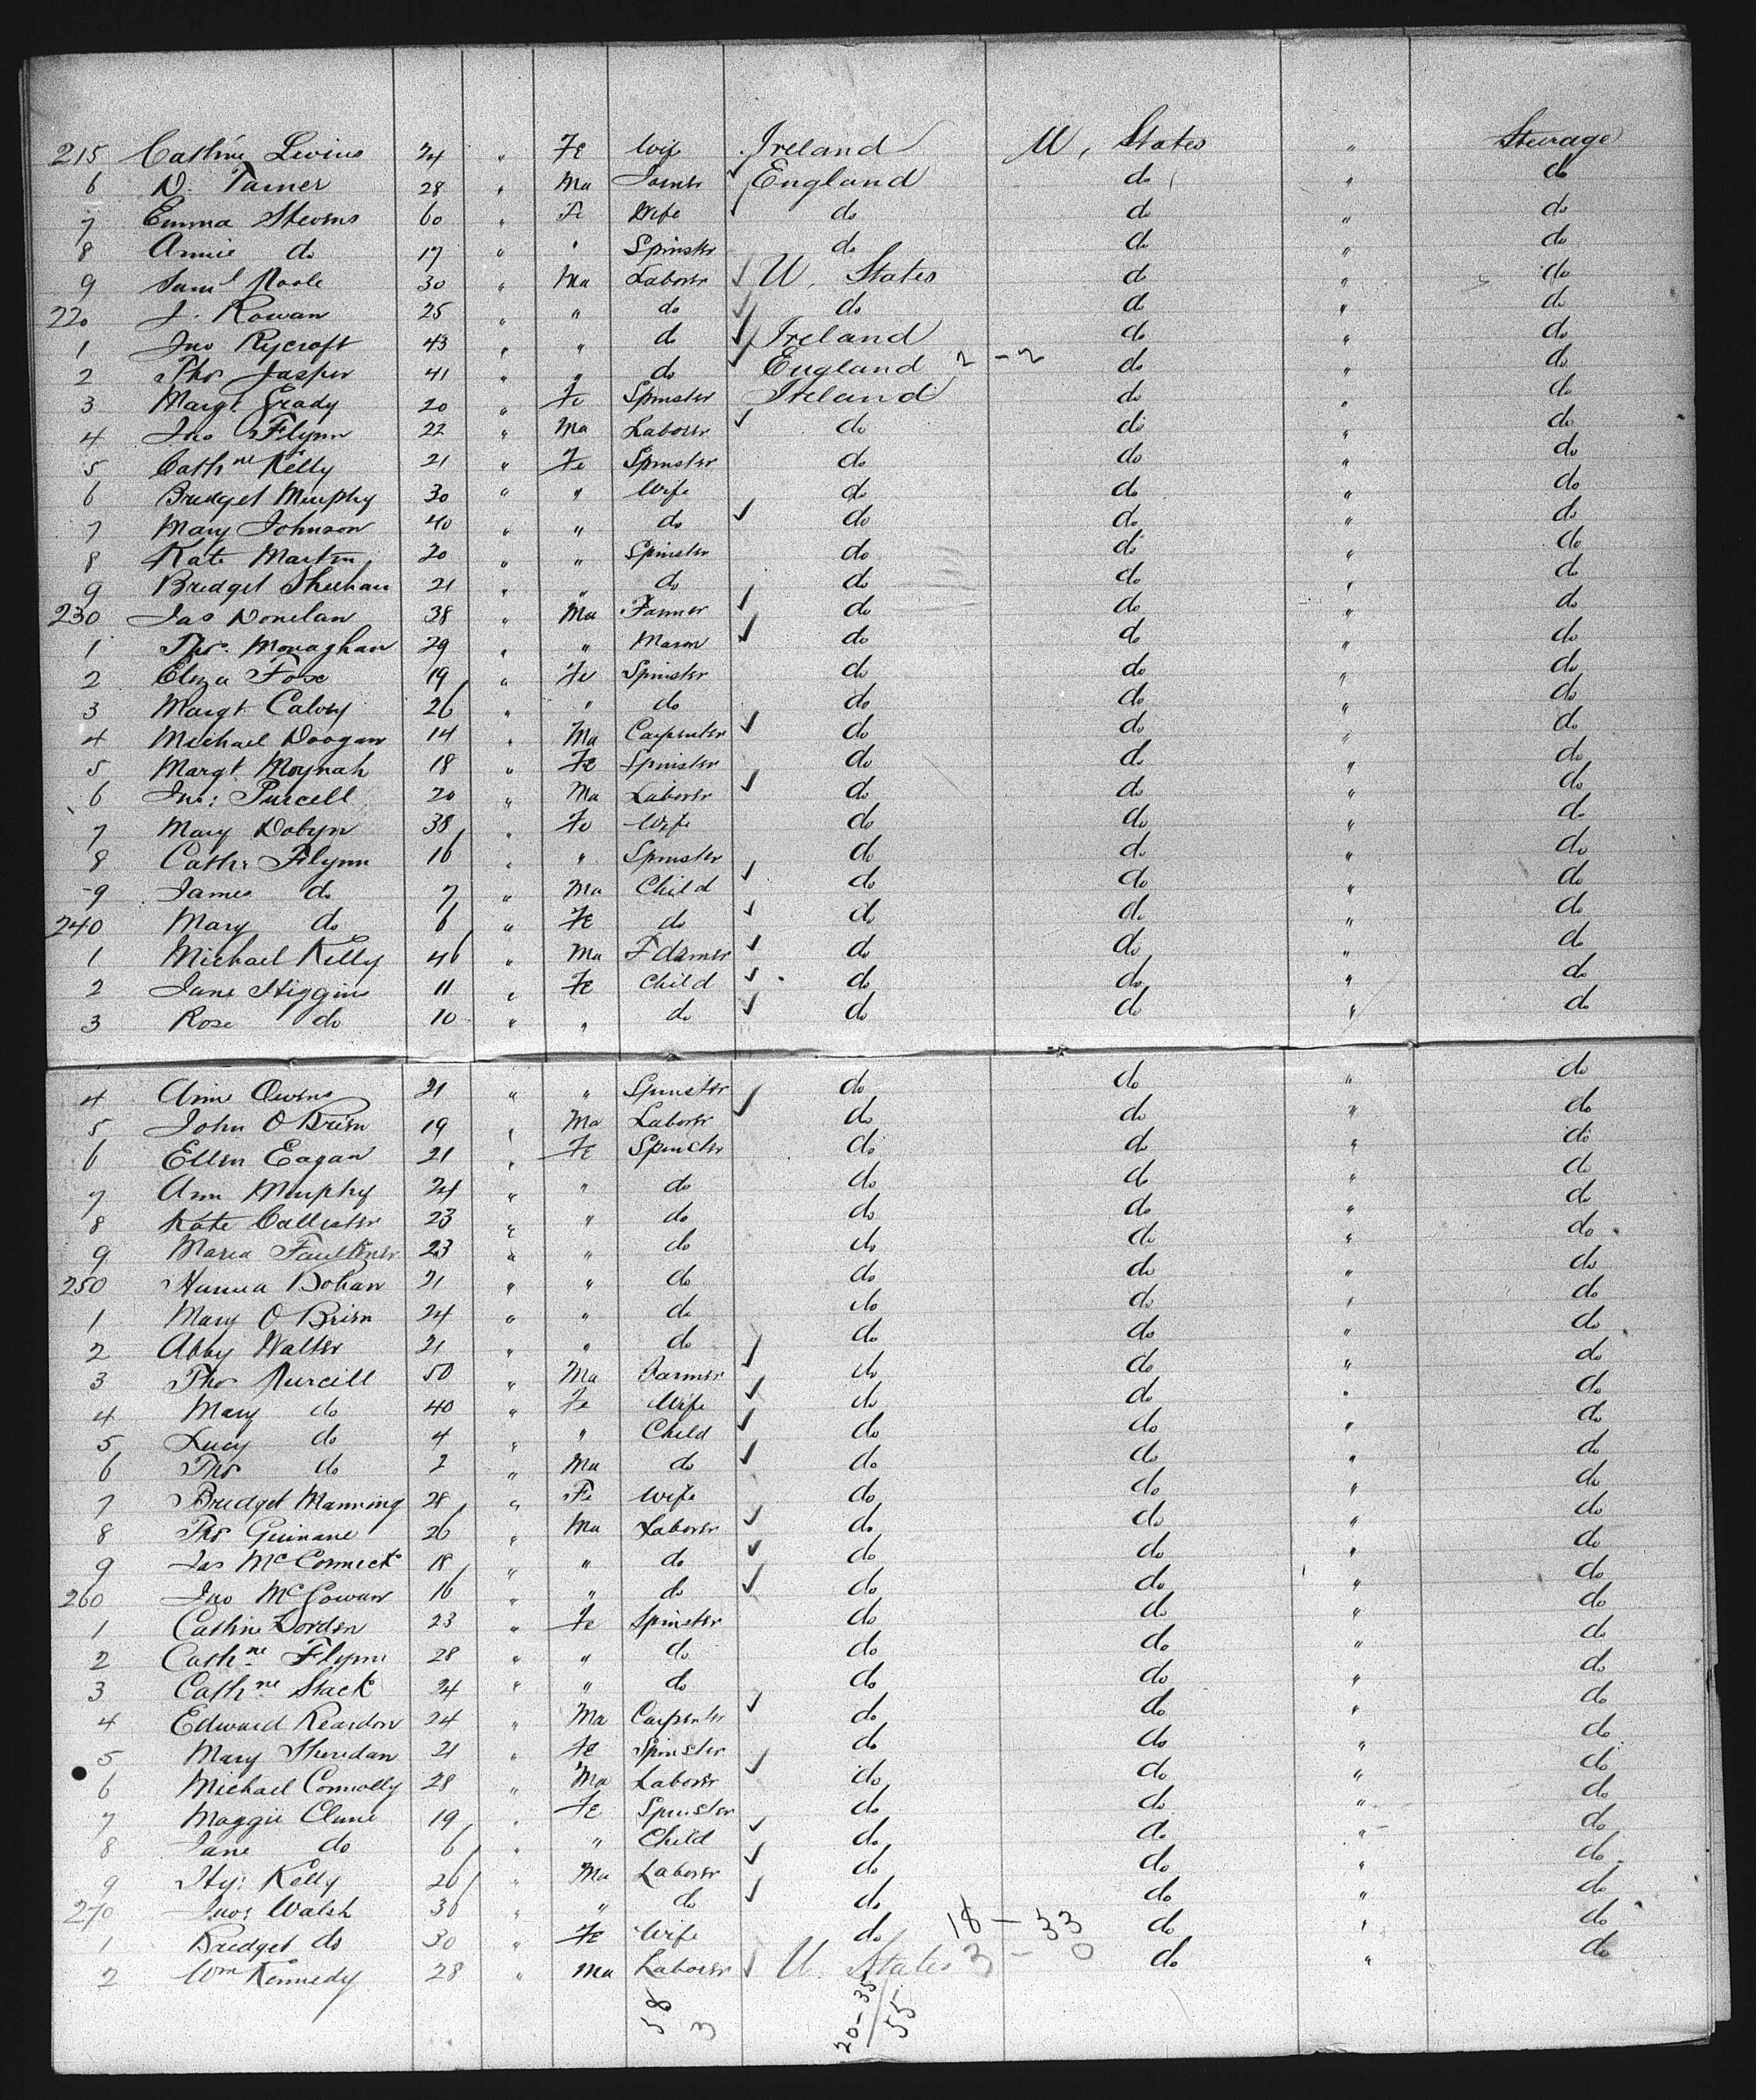 215 Cathne Levins 24 " Fe Wife Ireland U. States " Steerage
6 D. Tarner 28 " Ma Joiner England do " do
7 Emma Stevens 60 " Fe Wife do do " do
8 Annie do 17 " " Spinster do do " do
9 Saml Poole 30 " Ma Laborer U. States do " do
220 J. Rowan 25 " " do do do " do
1 Jno Rycroft 43 " " do Ireland do " do
2 Thos Jasper 41 " " do England 2 - 2 do " do
3 Margt Grady 20 " Fe Spinster Ireland do " do
4 Jno Flynn 22 " Ma Laborer do do " do
5 Cathne Kelly 21 " Fe Spinster do do " do
6 Bridget Murphy 30 " " Wife do do " do
7 Mary Johnson 40 " " do do do " do
8 Kate Martin 20 " " Spinster do do " do
9 Bridget Sheehan 21 " " do do do " do
230 Jas Donelan 38 " Ma Farmer do do " do
1 Thos. Monaghan 29 " " Mason do do " do
2 Eliza Fox 19 " Fe Spinster do do " do
3 Margt Calvey 26 " " do do do " do
4 Michael Doogan 14 " Ma Carpenter do do " do
5 Margt Moynah 18 " Fe Spinster do do " do
6 Jno: Purcell 20 " Ma Laborer do do " do
7 Mary Dobyn 38 " Fe Wife do do " do
8 Cath: Flynn 16 " " Spinster do do " do
9 James do 7 " Ma Child do do " do
240 Mary do 6 " Fe do do do " do
1 Michael Kelly 46 " Ma Farmer do do " do
2 Jane Higgins 11 " Fe Child do do " do
3 Rose do 10 " " do do do " do
4 Ann Owens 21 " " Spinster do do " do
5 John O Brien 19 " Ma Laborer do do " do
6 Ellen Eagan 21 " Fe Spinster do do " do
7 Ann Murphy 24 " " do do do " do
8 Kate Callister 23 " " do do do " do
9 Maria Faulkner 23 " " do do do " do
250 Hanna Bohan 21 " " do do do " do
1 Mary O Brien 24 " " do do do " do
2 Abby Walter 21 " " do do do " do
3 Thos Purcell 50 " Ma Farmer do do " do
4 Mary do 40 " Fe Wife do do " do
5 Lucy do 4 " " Child do do " do
6 Thos do 2 " Ma do do do " do
7 Bridget Manning 28 " Fe Wife do do " do
8 Thos Guinane 26 " Ma Laborer do do " do
9 Jas McCormick 18 " " do do do " do
260 Jno McGowan 16 " " do do do " do
1 Cathne Dorden 23 " Fe Spinster do do " do
2 Cathne Flynn 28 " " do do do " do
3 Cathne Stack 24 " " do do do " do
4 Edward Reardon 24 " Ma Carpenter do do " do
5 Mary Sheridan 21 " Fe Spinster do do " do
6 Michael Connolly 28 " Ma Laborer do do " do
7 Maggie Clune 19 " Fe Spinster do do " do
8 Jane do 6 " " Child do do " do
9 Hy: Kelly 26 " Ma Laborer do do " do
270 Jno: Walsh 36 " " do do do " do
1 Bridget do 30 " Fe Wife do 18 - 33 do " do
2 Wm Kennedy 28 " Ma Laborer U. States 3 - 0 do " do
58 20-35
3 55